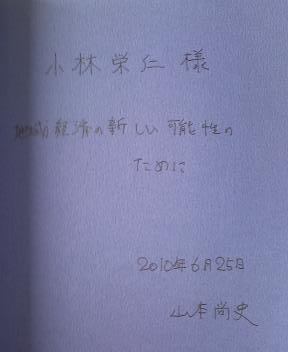 小林栄仁 様
地域経済の新しい可能性の
ために
2010年6月25日
山本尚史